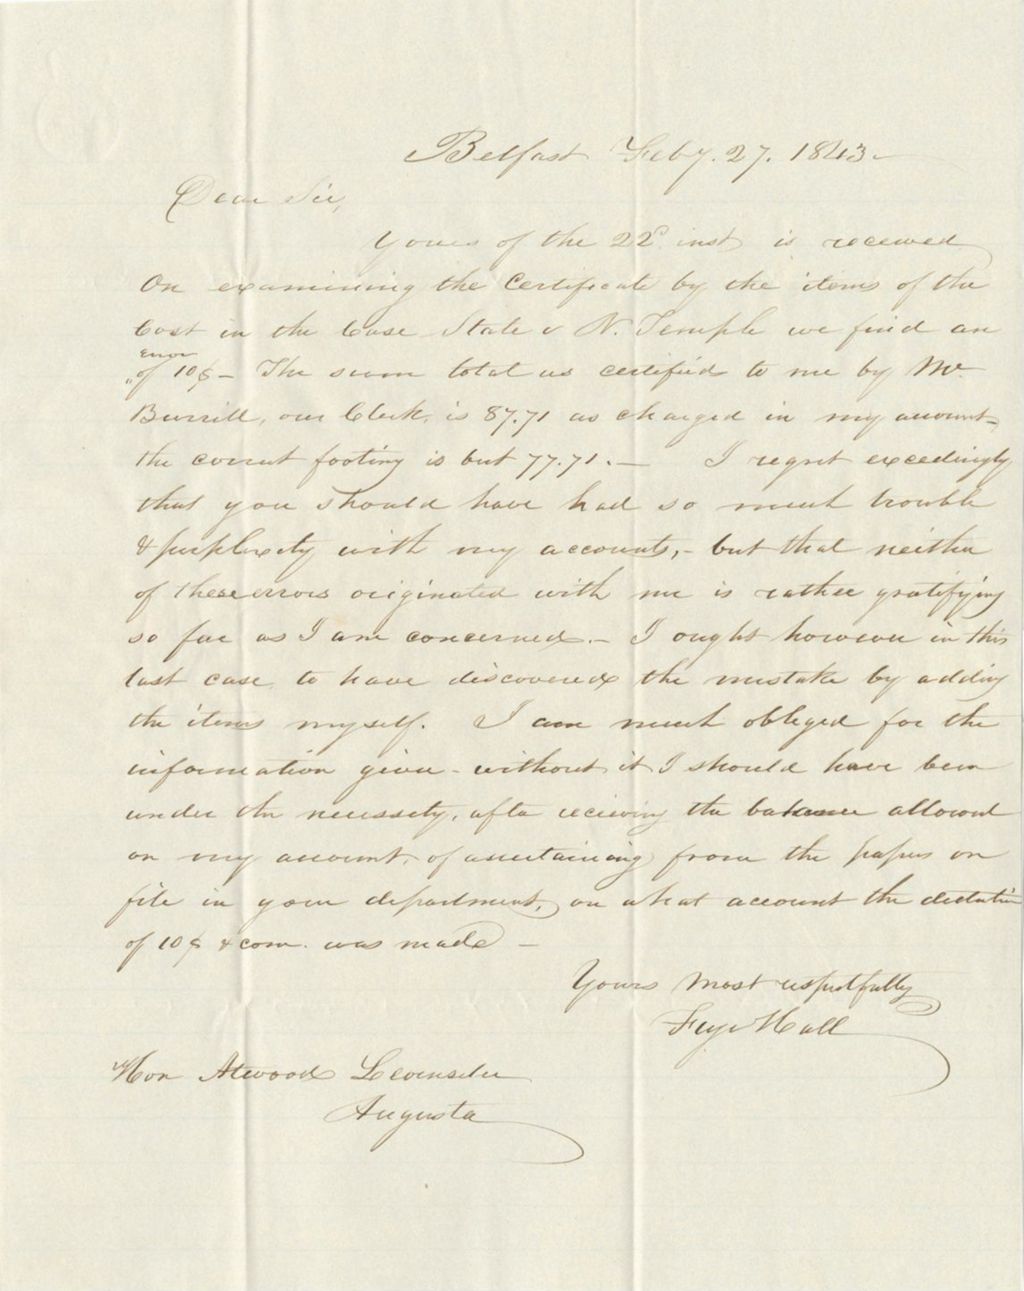 Belfast Feby. 27. 1843-
Dear Sir,
Yours of the 22d inst is received
On examining the certificate by the items of the
Cost in the Case State v N. Temple we find an
error
of 10$ - The sum total as certified to me by Mr
Burrill, our Clerk, is 87.71 as charged in my account-
the correct footing is but 77.71. - I regret exceedingly
that you should have had so much trouble
& perplexity with my accounts, - but that neither
of these errors originated with me is rather gratifying
so far as I am concerned. - I ought however in this
last case, to have discovered the mistake by adding
the items myself. I am much obliged for the
information given - without it I should have been
under the necessity, after receiving the balance allowed
on my account, of ascertaining from the papers on
file in your department, on what account the deduction
of 10$ & com. was made -
Yours most respectfully
Frye Hall
Hon Atwood Levensaler
Augusta